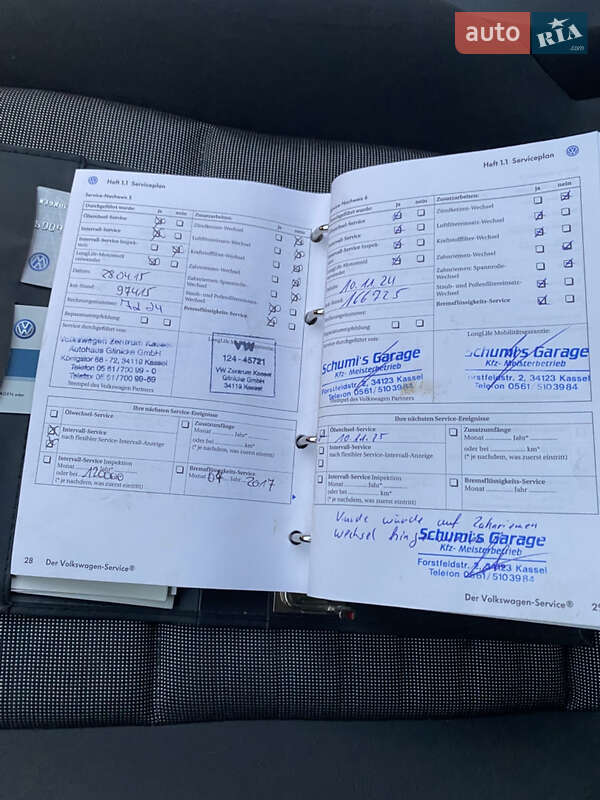 auto RIA .com
Heft 1.1 Serviceplan
Service-Nachweis 5
Durchgeführt wurde: ja nein Zusatzarbeiten: ja nein
Ölwechsel-Service
Zündkerzen-Wechsel
Intervall-Service
Luftfiltereinsatz-Wechsel
Intervall-Service Inspektion
Kraftstofffilter-Wechsel
LongLife-Motorenöl verwendet
Zahnriemen-Wechsel
Datum: 28.04.15
Zahnriemen- Spannrolle-Wechsel
km-Stand: 97415
Staub- und Pollenfiltereinsatz-Wechsel
Rechnungsnummer:
Bremsflüssigkeits-Service
Reparaturempfehlung
Service durchgeführt von:
LongLife Mobilitätsgarantie:
Volkswagen Zentrum Kassel
Autohaus Glinicke GmbH
Königstor 68 - 72, 34119 Kassel
Telefon 05 61/700 99 - 0
Telefon 05 61/700 99-69
Stempel des Volkswagen Partners
VW
124-45721
VW Zentrum Kassel
Glinicke GmbH
34119 Kassel
Ihre nächsten Service-Ereignisse
Ölwechsel-Service
Zusatzumfänge
Monat Jahr*
oder bei km*
(* je nachdem, was zuerst eintritt)
Intervall-Service
nach flexibler Service-Intervall-Anzeige
Intervall-Service Inspektion
Monat Jahr*
oder bei 120000 km*
(* je nachdem, was zuerst eintritt)
Bremsflüssigkeits-Service
Monat 04 Jahr 2017
28 Der Volkswagen-Service®
Heft 1.1 Serviceplan
Service-Nachweis 6
Durchgeführt wurde: ja nein Zusatzarbeiten: ja nein
Ölwechsel-Service
Zündkerzen-Wechsel
Intervall-Service
Luftfiltereinsatz-Wechsel
Intervall-Service Inspektion
Kraftstofffilter-Wechsel
LongLife-Motorenöl verwendet
Zahnriemen-Wechsel
Datum: 10.11.24
Zahnriemen- Spannrolle-Wechsel
km-Stand: 166725
Staub- und Pollenfiltereinsatz-Wechsel
Rechnungsnummer:
Bremsflüssigkeits-Service
Reparaturempfehlung
Service durchgeführt von:
LongLife Mobilitätsgarantie:
Schumi's Garage
Kfz- Meisterbetrieb
Forstfeldstr. 2, 34123 Kassel
Telefon 0561/5103984
Stempel des Volkswagen Partners
Schumi's Garage
Kfz- Meisterbetrieb
Forstfeldstr. 2, 34123 Kassel
Telefon 0561/5103984
Ihre nächsten Service-Ereignisse
Ölwechsel-Service
10.11.25
Zusatzumfänge
Monat Jahr*
oder bei km*
(* je nachdem, was zuerst eintritt)
Intervall-Service
nach flexibler Service-Intervall-Anzeige
Intervall-Service Inspektion
Monat Jahr*
oder bei km*
(* je nachdem, was zuerst eintritt)
Bremsflüssigkeits-Service
Monat Jahr*
Kunde wurde auf Zahnriemen
wechsel
Schumi's Garage
Kfz- Meisterbetrieb
Forstfeldstr. 2, 34123 Kassel
Telefon 0561/5103984
Der Volkswagen-Service® 29